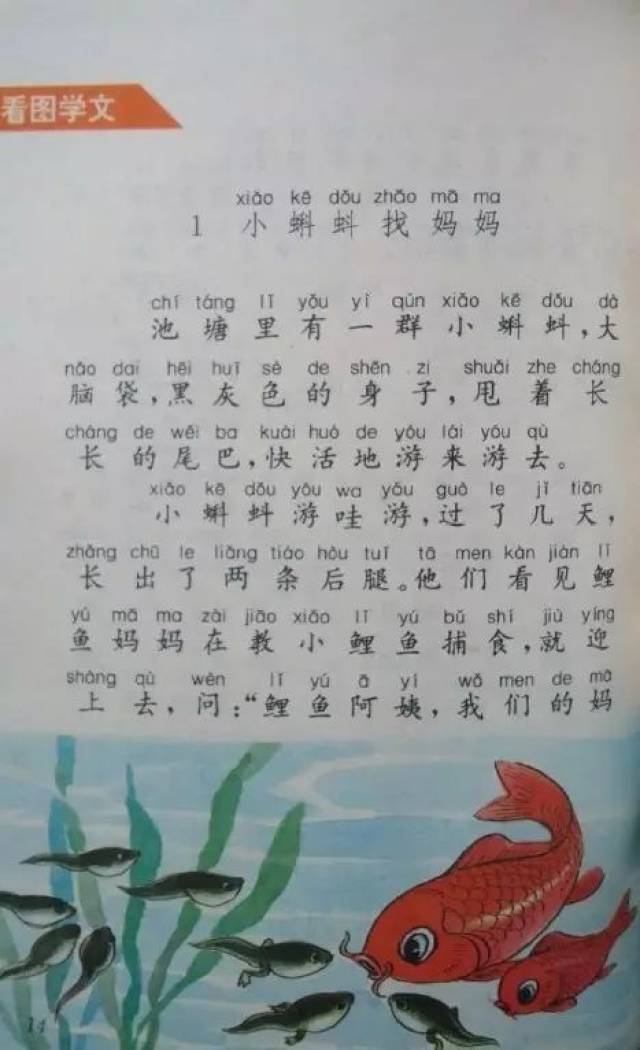 看图学文
xiǎo kē dǒu zhǎo mā ma
1 小蝌蚪找妈妈
chí táng lǐ yǒu yì qún xiǎo kē dǒu dà
池塘里有一群小蝌蚪，大
nǎo dai hēi huī sè de shēn zi shuǎi zhe cháng
脑袋，黑灰色的身子，甩着长
cháng de wěi ba kuài huó de yóu lái yóu qù
长的尾巴，快活地游来游去。
xiǎo kē dǒu yóu wa yóu guò le jǐ tiān
小蝌蚪游哇游，过了几天，
zhǎng chū le liǎng tiáo hòu tuǐ tā men kàn jiàn lǐ
长出了两条后腿。他们看见鲤
yú mā ma zài jiāo xiǎo lǐ yú bǔ shí jiù yíng
鱼妈妈在教小鲤鱼捕食，就迎
shàng qù wèn lǐ yú ā yí wǒ men de mā
上去，问：“鲤鱼阿姨，我们的妈
14